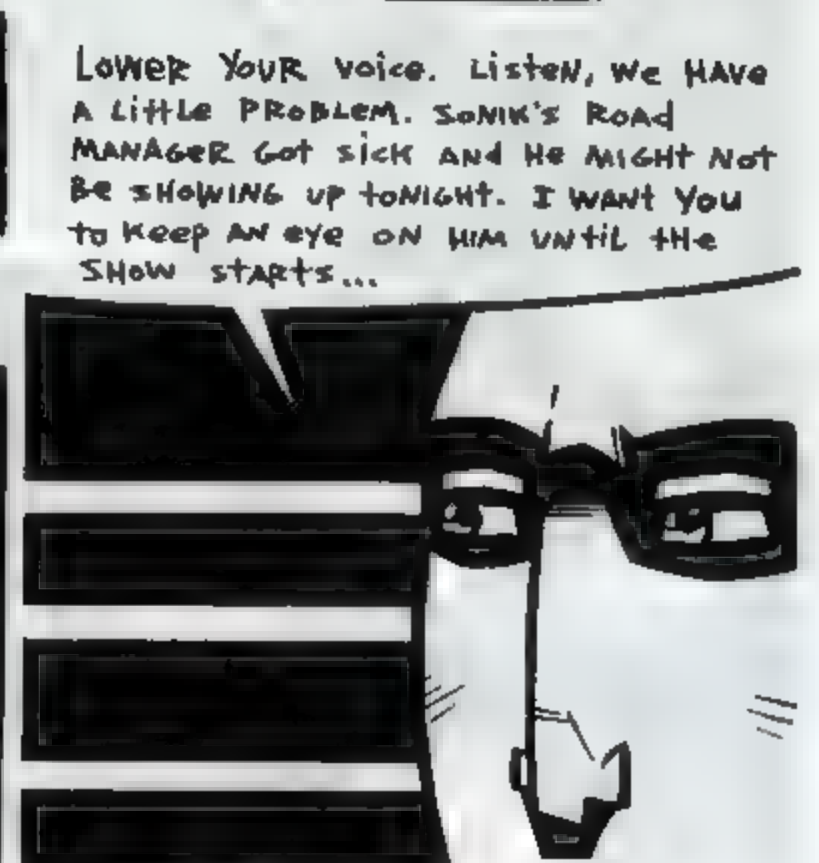 LOWER YOUR VOICE. LISTEN, WE HAVE
A LITTLE PROBLEM. SONIK'S ROAD
MANAGER GOT SICK AND HE MIGHT NOT
BE SHOWING UP TONIGHT. I WANT YOU
TO KEEP AN EYE ON HIM UNTIL THE
SHOW STARTS...